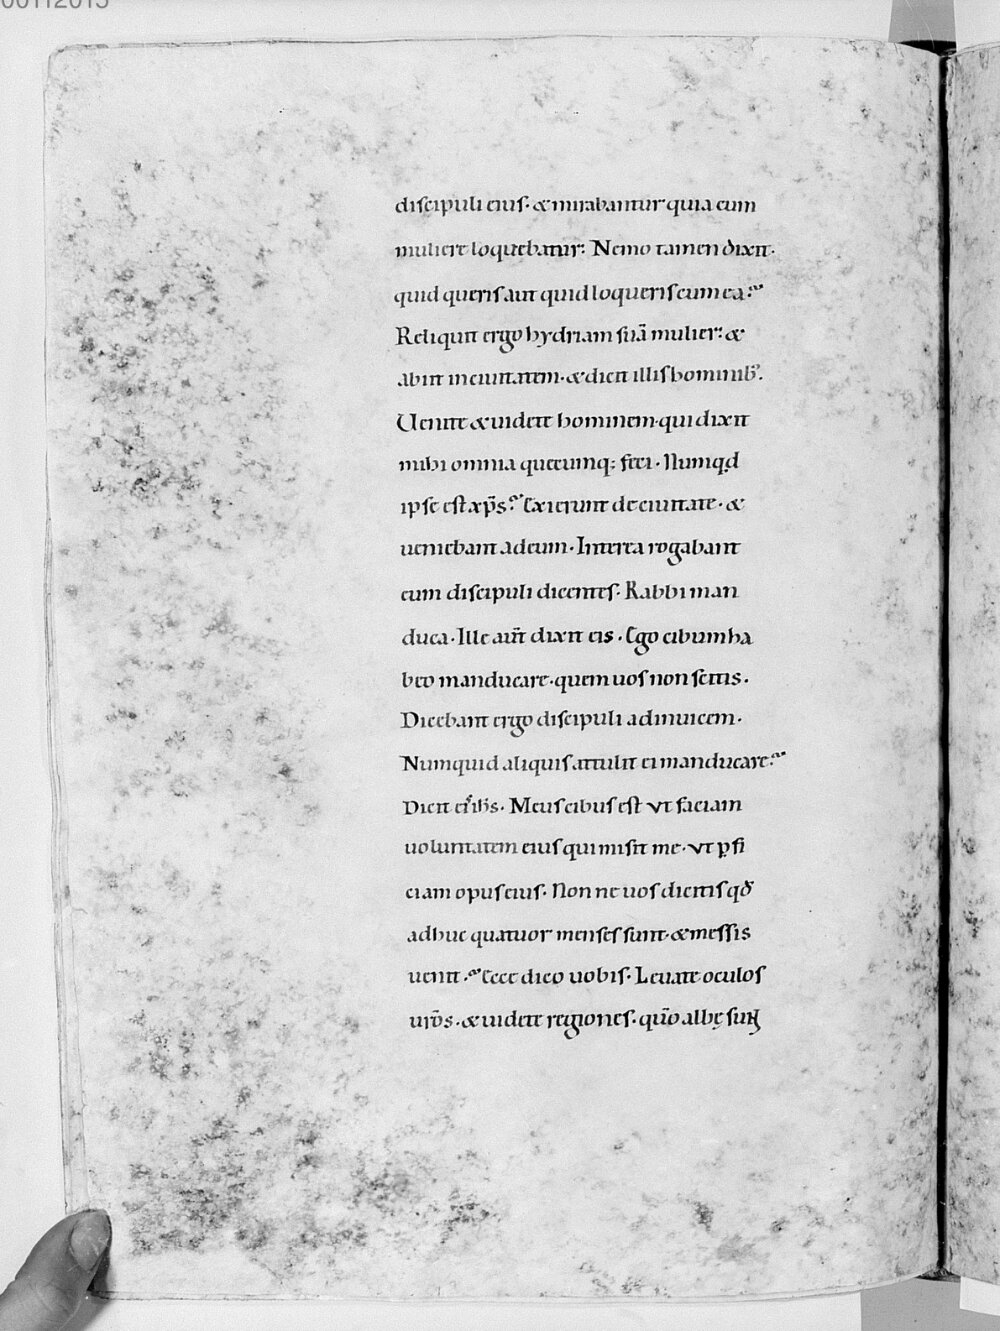 discipuli eius. & mirabantur quia cum
muliere loquebatur: Nemo tamen dixit.
quid queris aut quid loqueris cum ea?
Reliquit ergo hydriam suā mulier: &
abiit in ciuitatem. & dicit illis hominib;.
Uenite & uidete hominem. qui dixit
mihi omnia quecumq; feci. Numqd
ipse est xp̄s? Exierunt de ciuitate. &
ueniebant ad eum. Interea rogabant
eum discipuli dicentes. Rabbi man
duca. Ille aūt dixit eis. Ego cibum ha
beo manducare. quem uos non scitis.
Dicebant ergo discipuli adinuicem.
Numquid aliquis attulit ei manducare?
Dicit eis ihs. Meus cibus est ut faciam
uoluntatem eius qui misit me. ut ꝑfi
ciam opus eius. Non ne uos dicitis qđ
adhuc quatuor menses sunt. & messis
uenit? Ecce dico uobis. Leuate oculos
urōs. & uidete regiones. qūo albę sunt